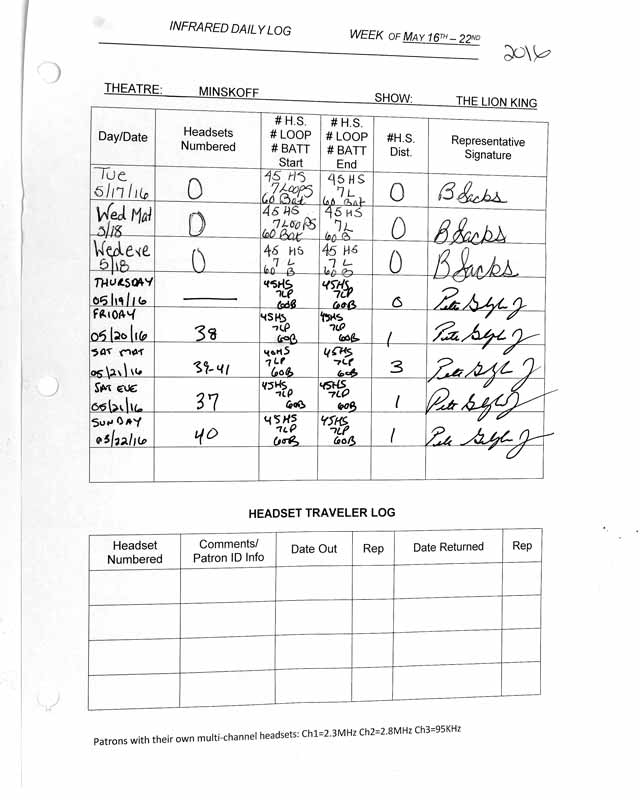 INFRARED DAILY LOG WEEK OF MAY 16TH – 22ND
2016
THEATRE: MINSKOFF SHOW: THE LION KING
Day/Date Headsets Numbered # H.S. # LOOP # BATT Start # H.S. # LOOP # BATT End #H.S. Dist. Representative Signature
Tue 5/17/16 0 45 HS 7 Loops 60 Bat 45 HS 7 L 60 Bat 0 B Sacks
Wed Mat 5/18 0 45 HS 7 Loops 60 Bat 45 HS 7 L 60 B 0 B Sacks
Wed eve 5/18 0 45 HS 7 L 60 B 45 HS 7 L 60 B 0 B Sacks
THURSDAY 05/19/16 — 45HS 7LP 60B 45HS 7LP 60B 0
FRIDAY 05/20/16 38 45HS 7LP 60B 45HS 7LP 60B 1
SAT MAT 05/21/16 39-41 45HS 7LP 60B 3
SAT EVE 05/21/16 37 45HS 7LP 60B 45HS 7LP 60B 1
SUNDAY 40 45HS 7LP 60B 45HS 7LP 60B 1
HEADSET TRAVELER LOG
Headset Numbered Comments/ Patron ID Info Date Out Rep Date Returned Rep
Patrons with their own multi-channel headsets: Ch1=2.3MHz Ch2=2.8MHz Ch3=95KHz